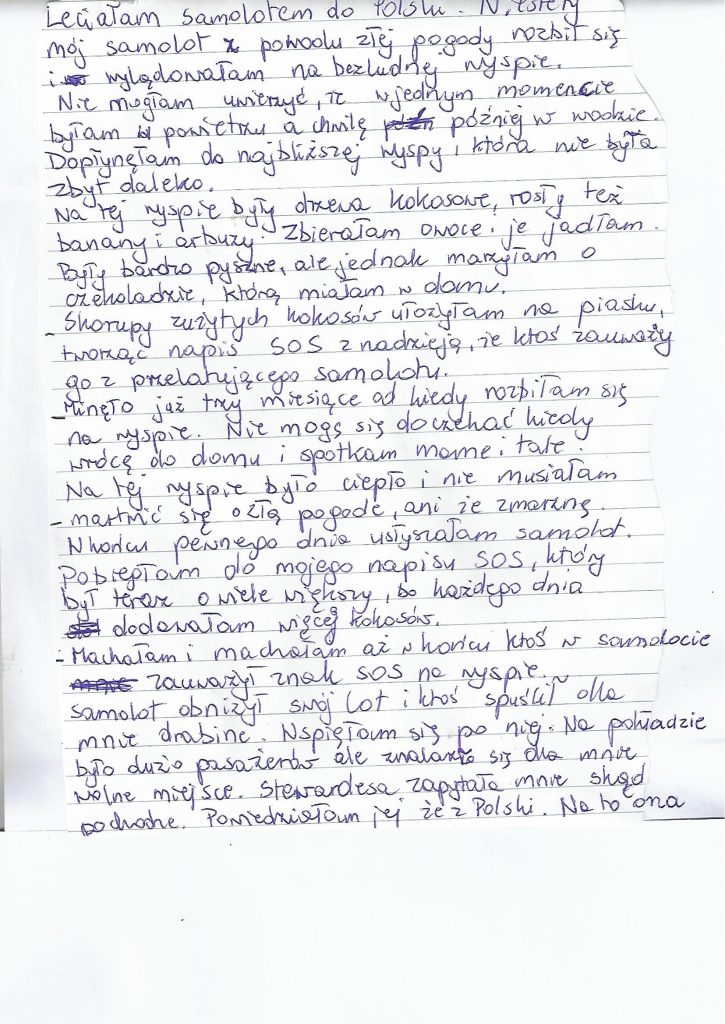 Leciałam samolotem do Polski. Niestety
mój samolot z powodu złej pogody rozbił się
i wylądowałam na bezludnej wyspie.
Nie mogłam uwierzyć, że w jednym momencie
byłam w powietrzu a chwilę później w wodzie.
Dopłynęłam do najbliższej wyspy, która nie była
zbyt daleko.
Na tej wyspie były drzewa kokosowe, rosły też
banany i arbuzy. Zbierałam owoce i je jadłam.
Były bardzo pyszne, ale jednak marzyłam o
czekoladzie, którą miałam w domu.
- Skorupy zużytych kokosów ułożyłam na piasku,
tworząc napis SOS z nadzieją, że ktoś zauważy
go z przelatującego samolotu.
- Minęło już trzy miesiące od kiedy rozbiłam się
na wyspie. Nie mogę się doczekać kiedy
wrócę do domu i spotkam mamę i tatę.
Na tej wyspie było ciepło i nie musiałam
- martwić się o złą pogodę, ani że zmarznę.
W końcu pewnego dnia usłyszałam samolot.
Pobiegłam do mojego napisu SOS, który
był teraz o wiele większy, bo każdego dnia
dodawałam więcej kokosów.
- Machałam i machałam aż w końcu ktoś w samolocie
zauważył znak SOS na wyspie.
samolot obniżył swój lot i ktoś spuścił dla
mnie drabinę. Wspięłam się po niej. Na pokładzie
było dużo pasażerów ale znalazło się dla mnie
wolne miejsce. Stewardesa zapytała mnie skąd
pochodzę. Powiedziałam jej że z Polski. Na to ona